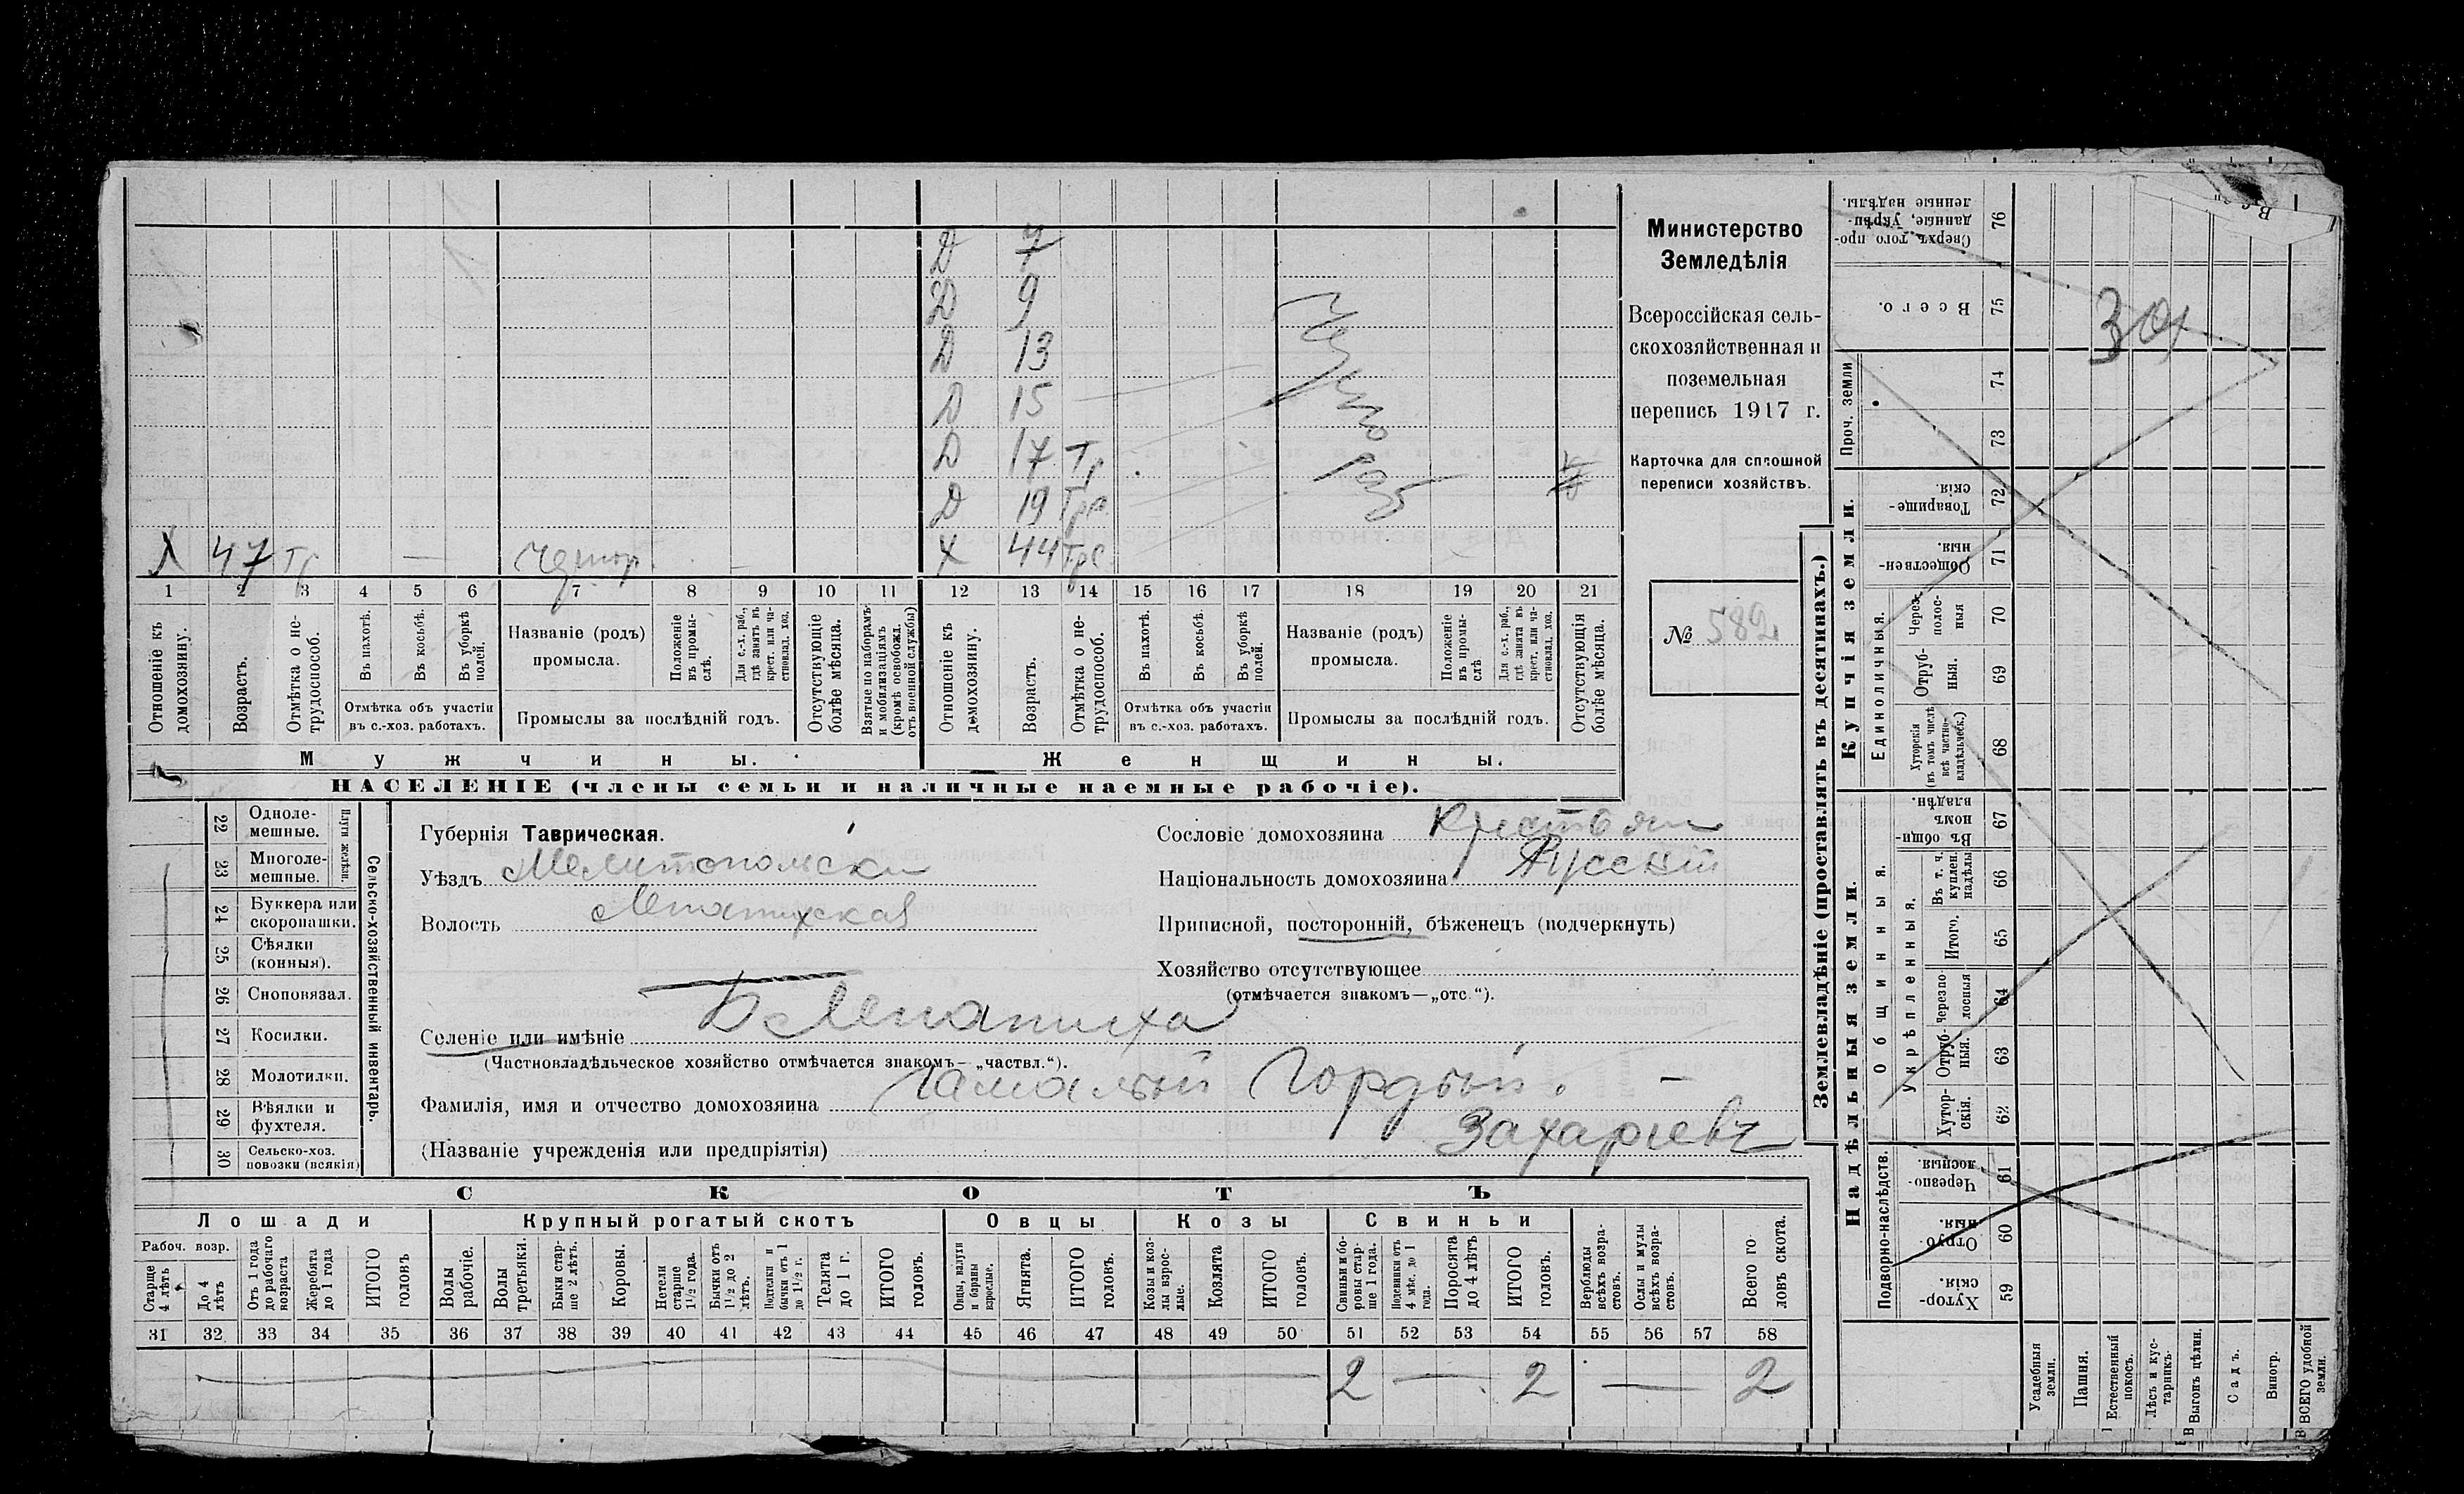 Министерство
Земледѣлія
Всероссійская сель-
скохозяйственная и
поземельная
перепись 1917 г.
Карточка для сплошной
переписи хозяйствъ.
№ 582
Д 7
Д 9
Д 13
Д 15
Д 17 Тр
Д 19 Тр
Х 47 Тр —
Х 44 Тр
1 2 3 4 5 6 7 8 9 10 11 12 13 14 15 16 17 18 19 20 21
Отношеніе къ домохозяину.
Возрастъ.
Отмѣтка о не-трудоспособ.
Въ пахотѣ.
Въ косьбѣ.
Въ уборкѣ полей.
Отмѣтка объ участіи
въ с.-хоз. работахъ.
Названіе (родъ)
промысла.
Положеніе въ промы-слѣ.
Для с.-х. раб., гдѣ занятъ въ крест. или ча-стновлад. хоз.
Промыслы за послѣдній годъ.
Отсутствующіе болѣе мѣсяца.
Взятые по наборамъ и мобилизаціямъ (кромѣ освобожд. отъ военной службы)
Отношеніе къ домохозяину.
Возрастъ.
Отмѣтка о не-трудоспособ.
Въ пахотѣ.
Въ косьбѣ.
Въ уборкѣ полей.
Отмѣтка объ участіи
въ с.-хоз. работахъ.
Названіе (родъ)
промысла.
Положеніе въ промы-слѣ
Для с.-х. раб., гдѣ занята въ крест. или ча-стновлад. хоз.
Промыслы за послѣдній годъ.
Отсутствующія болѣе мѣсяца.
Мужчины.
Женщины.
НАСЕЛЕНІЕ (члены семьи и наличные наемные рабочіе).
22 Одноле-мешные.
23 Многоле-мешные.
Плуги желѣзн.
24 Буккера или скоропашки.
25 Сѣялки (конныя).
26 Сноповязал.
27 Косилки.
28 Молотилки.
29 Вѣялки и фухтеля.
30 Сельско-хоз. повозки (всякія)
Сельско-хозяйственный инвентарь.
Губернія Таврическая.
Уѣздъ Мелитопольски
Волость Лепатихская
Селеніе или имѣніе Б Лепатиха
(Частновладѣльческое хозяйство отмѣчается знакомъ—„частвл.“).
Фамилія, имя и отчество домохозяина Гамалій Гордѣй. —
Захарьевъ
(Названіе учрежденія или предпріятія)
Сословіе домохозяина Крестьян
Національность домохозяина Русскій
Приписной, посторонній, бѣженецъ (подчеркнуть)
Хозяйство отсутствующее
(отмѣчается знакомъ—„отс.“).
СКОТЪ
Лошади
Крупный рогатый скотъ
Овцы
Козы
Свиньи
Рабоч. возр.
Старше 4 лѣтъ
До 4 лѣтъ
Отъ 1 года до рабочаго возраста
Жеребята до 1 года
ИТОГО головъ
Волы рабочіе.
Волы третьяки.
Быки стар-ше 2 лѣтъ.
Коровы.
Нетели старше 1½ года.
Бычки отъ 1½ до 2 лѣтъ.
Подтелки и бычки отъ 1 до 1½ г.
Телята до 1 г.
ИТОГО головъ.
Овцы, валухи и бараны взрослые.
Ягнята.
ИТОГО головъ.
Козы и коз-лы взрос-лые.
Козлята
ИТОГО головъ.
Свиньи и бо-ровы стар-ше 1 года.
Подсвинки отъ 4 мѣс. до 1 года.
Поросята до 4 лѣтъ
ИТОГО головъ.
Верблюды всѣхъ возра-стовъ.
Ослы и мулы всѣхъ возра-стовъ.
Всего го ловъ скота.
31 32 33 34 35 36 37 38 39 40 41 42 43 44 45 46 47 48 49 50 51 52 53 54 55 56 57 58
2 — 2 — 2
Землевладѣніе (проставлять въ десятинахъ.)
Надѣльныя земли.
Купчія земли.
Проч. земли
Подворно-наслѣдств.
Общинныя.
Укрѣпленныя.
Единоличныя.
Хутор-скія. 59
Отруб-ныя. 60
Черезпо-лосныя. 61
Хутор-скія. 62
Отруб-ныя. 63
Черезпо-лосныя 64
Итого. 65
Въ т. ч. куплен. надѣлы 66
Въ общи-номъ владѣн. 67
Хуторскія (въ томъ числѣ всѣ частно-владѣльческ.) 68
Отруб-ныя. 69
Черезполос-ныя 70
Обществен-ныя. 71
Товарище-скія. 72
73
74
Всего. 75
Сверхъ того про-данные, укрѣп-ленные надѣлы. 76
Усадебныя земли.
Пашня.
Естественный покосъ.
Лѣсъ и кус-тарникъ.
Выгонъ цѣлин.
Садъ.
Виногр.
ВСЕГО удобной земли.